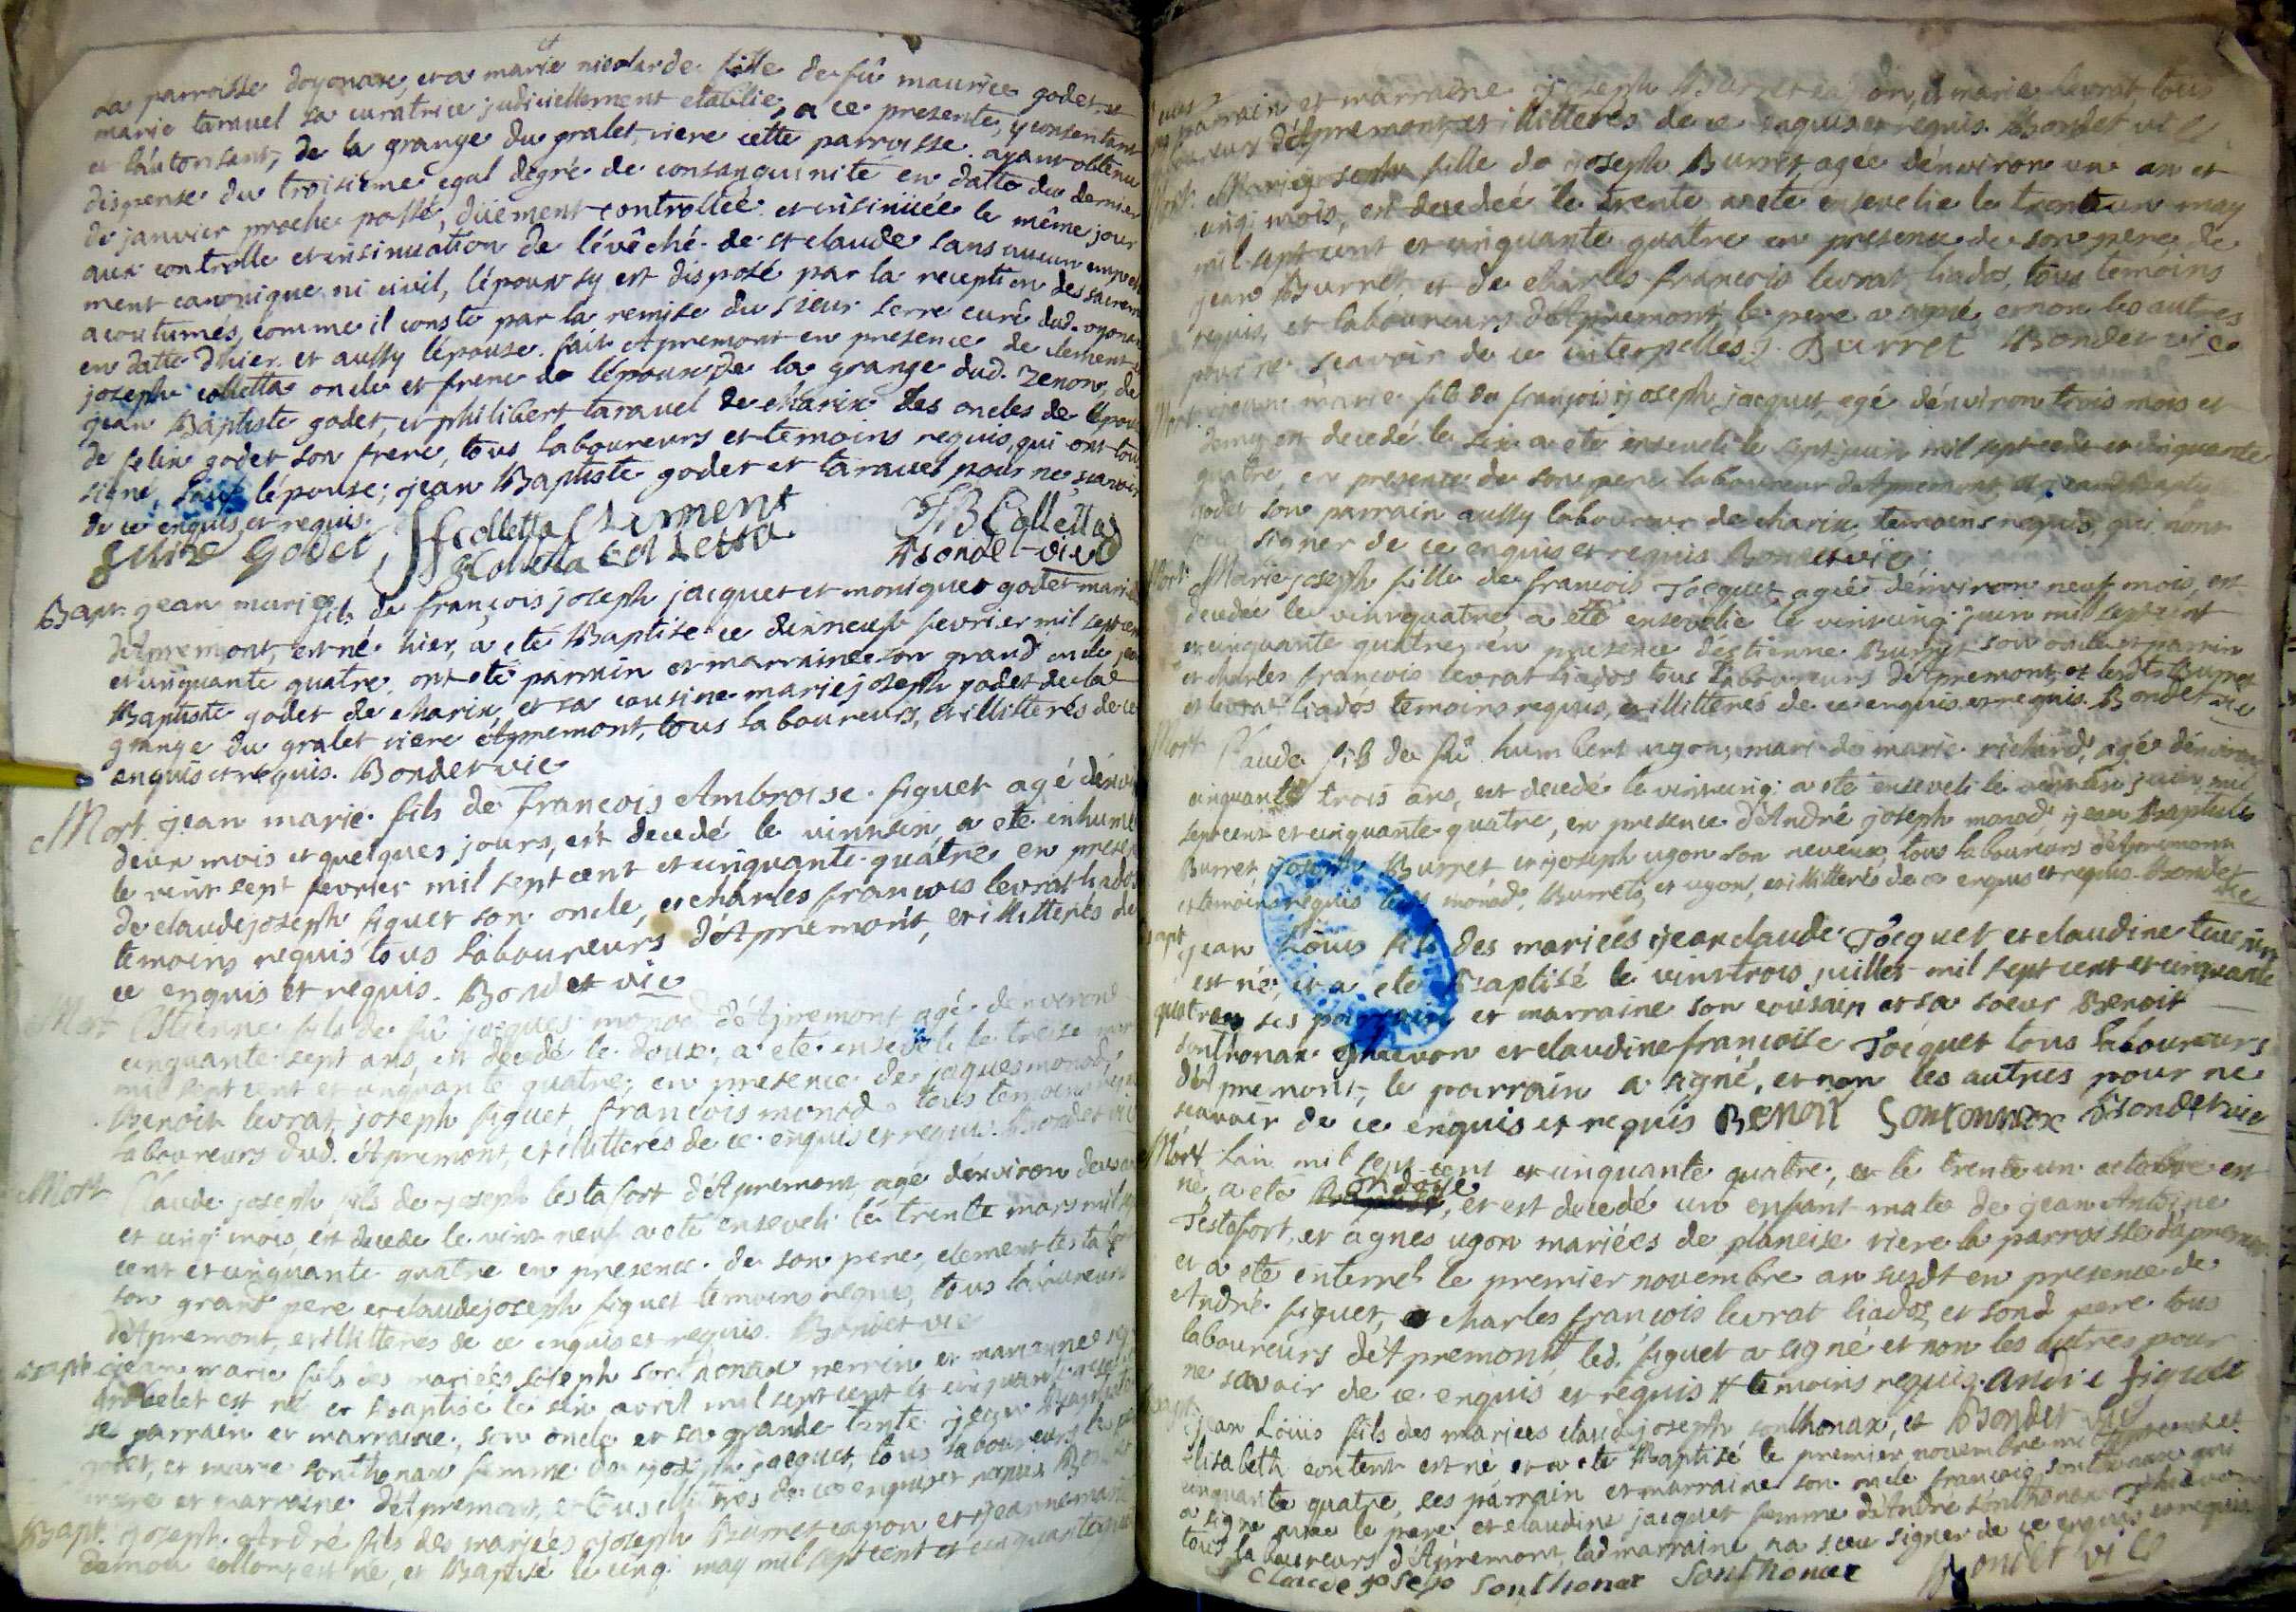 la parroisse doyonax, et a marie nicolarde fille de fû maurice godet, et
marie taravel sa curatrice judiciellement etablie, a ce presente, y consentant
et lautorisant, de la grange du gralet riere cette parroisse. ayant obtenu
dispense du troisieme egal degré de consanguinité en datte du dernier
de janvier proche passé, düement controllée et insinüée le même jour
aux controlle et insinuation de lévêché de st claude sans aucun empech
ment canonique ni civil, lépoux sy est disposé par la reception des sacrem
acoutumés, comme il conste par la remise du sieur serre curé dud. oyonax
en datte d'hier et aussy lépouse. fait Apremont en presence de clement et
joseph colletta oncle et frere de lépoux de la grange dud. Zenon, de
jean Baptiste godet, et philibert taravel de charix les oncles de lépouse
de felix godet son frere, tous laboureurs et temoins requis, qui ont tous
signé, sauf lépouse; jean Baptiste godet et taravel pour ne scavoir
de ce enquis, et requis.
felix Godet, JJ colletta Clement JB Colletta
Colletta Bondet vic
Bapt. jean marie fils de françois joseph jacquet et monique godet mariés
d'Apremont, est né hier, a eté Baptisé ce dixneuf fevrier mil sept cent
et cinquante quatre, ont eté parrain et marraine son grand oncle jean
Baptiste godet de charix, et sa cousine mariejoseph godet de la
grange du gralet riere Apremont, tous laboureurs, et illitterés de ce
enquis et requis. Bondet vic
Mort. jean marie fils de françois Ambroise figuet agé dénviron
deux mois et quelques jours, est decedé le vintsix, a eté inhumé
le vint sept fevrier mil sept cent et cinquante quatre en presence
de claudejoseph figuet son oncle, et charles françois levrat liados
temoins requis tous laboureurs d'Apremont, et illitterés de
ce enquis et requis. Bondet vic
Mort Estienne fils de fû jacques monod d'Apremont agé denviron
cinquante sept ans, est decedé le douze, a eté enseveli le treize mars
mil sept cent et cinquante quatre, en presence de jaques monod,
Benoit levrat, joseph figuet, françois monod tous temoins requis
laboureurs dud. Apremont, et illitterés de ce enquis et requis. Bondet vic
Mort Claude joseph fils de joseph testafort d'Apremont agé dénviron deux ans
et cinq mois, est decedé le vint neuf a eté enseveli le trente mars mil sept
cent et cinquante quatre en presence de son pere, clement testafort
son grand pere et claudejoseph figuet temoins requis, tous laboureurs
d'Apremont, et illitterés de ce enquis et requis. Bondet vic
Bapt. jean marie fils des mariés joseph sonthonax perrin et marianne
grobelet est né et Baptisé le six avril mil sept cent et cinquante quatre
se parrain et marraine, son oncle et sa grande tante jean Baptiste
godet, et marie sonthonax femme de joseph jacquet, tous laboureurs les
et marraine d'Apremont, et tous illitterés de ce enquis et requis. Bondet
Bapt. joseph André fils des mariés joseph Burret et jeannemarie
est né, et Baptisé le cinq may mil sept cent et cinquante
parrain et marraine joseph Burret et marie levrat, tous
laboureurs d'Apremont, et illitterés de ce enquis et requis. Bondet vic
Mort. Marie joseph fille de joseph Burret, agée dénviron un an et
cinq mois, est decedeé le trente a eté ensevelie le trente un may
mil sept cent et cinquante quatre en presence de son pere, de
jean Burret et de charles françois levrat liados, tous temoins
requis, et laboureurs d'Apremont, le pere a signé et non les autres
pour ne sçavoir de ce interpellés. J. Burret Bondet vic
Mort. jean marie fils de françois joseph jacquet, agé dénviron trois mois et
demy est decedé le six a eté enseveli le sept juin mil sept cent et cinquante
quatre, en presence de son pere laboureur d'Apremont, et jean Baptiste
godet son parrain aussy laboureur de charix, temoins requis, qui n'ont
signer de ce enquis et requis Bondet vic.
Mort Marie joseph fille de françois Tocquet agée dénviron neuf mois, est
decedée le vintquatre, a été ensevelie le vintcinq juin mil sept cent
et cinquante quatre, en presence d'éstienne Burret son oncle et parrin
et charles françois levrat liados tous laboureurs d'Apremont, et lesdts Burret
et levrat liados temoins requis, et illitterés de ce enquis et requis. Bondet vic
Mort Claude fils de fû humbert ugon, mari de marie richard, agé dénviron
cinquante trois ans, est decedé le vintcinq a eté enseveli le vintsix juin mil
sept cent et cinquante quatre, en presence d'André joseph monod jean Baptiste
Burret joseph Burret et joseph ugon son neveux, tous laboureurs d'Apremont
et temoins requis lesd monod, Burrets, et ugon, et illitterés de ce enquis et requis. Bondet
vic
Bapt jean Loüis fils des mariées jean claude Tocquet et claudine
est né, et a eté Baptisé le vinttrois juillet mil sept cent et cinquante
quatre, ses parrain et marraine son cousin et sa soeur Benoit
sonthonax et claudinefrançoise Tocquet tous laboureurs
d'Apremont, le parrain a signé, et non les autres pour ne
scavoir de ce enquis et requis BENOIT Sontonnax Bondet vic
Mort Lan mil sept cent et cinquante quatre, et le trente un octobre est
né, a eté ondoye, et est decedé un enfant male de jean Antoine
Testafort, et agnes ugon mariées de planeise riere la parroisse d'apremont
et a eté enterré le premier novembre an susdt en presence de
André figuet, charles françois levrat liados, et sond pere tous
laboureurs d'Apremont led. figuet a signé et non les autres pour
ne savoir de ce enquis et requis # temoins requis. andre figuet
Bapt. jean Loüis fils des mariees claude joseph sonthonax, et Bondet vic
élisabeth content est né et a eté Baptisé le premier novembre mil sept cent et
cinquante quatre, ses parrain et marraine son oncle françois sonthonax qui
a signé avec le pere et claudine jacquet femme d'André sonthonax
tous laboureurs d'Apremont, lad marraine na sceu signer de ce enquis et requis.
Claude joseph Sonthonax Sonthonax Bondet vic